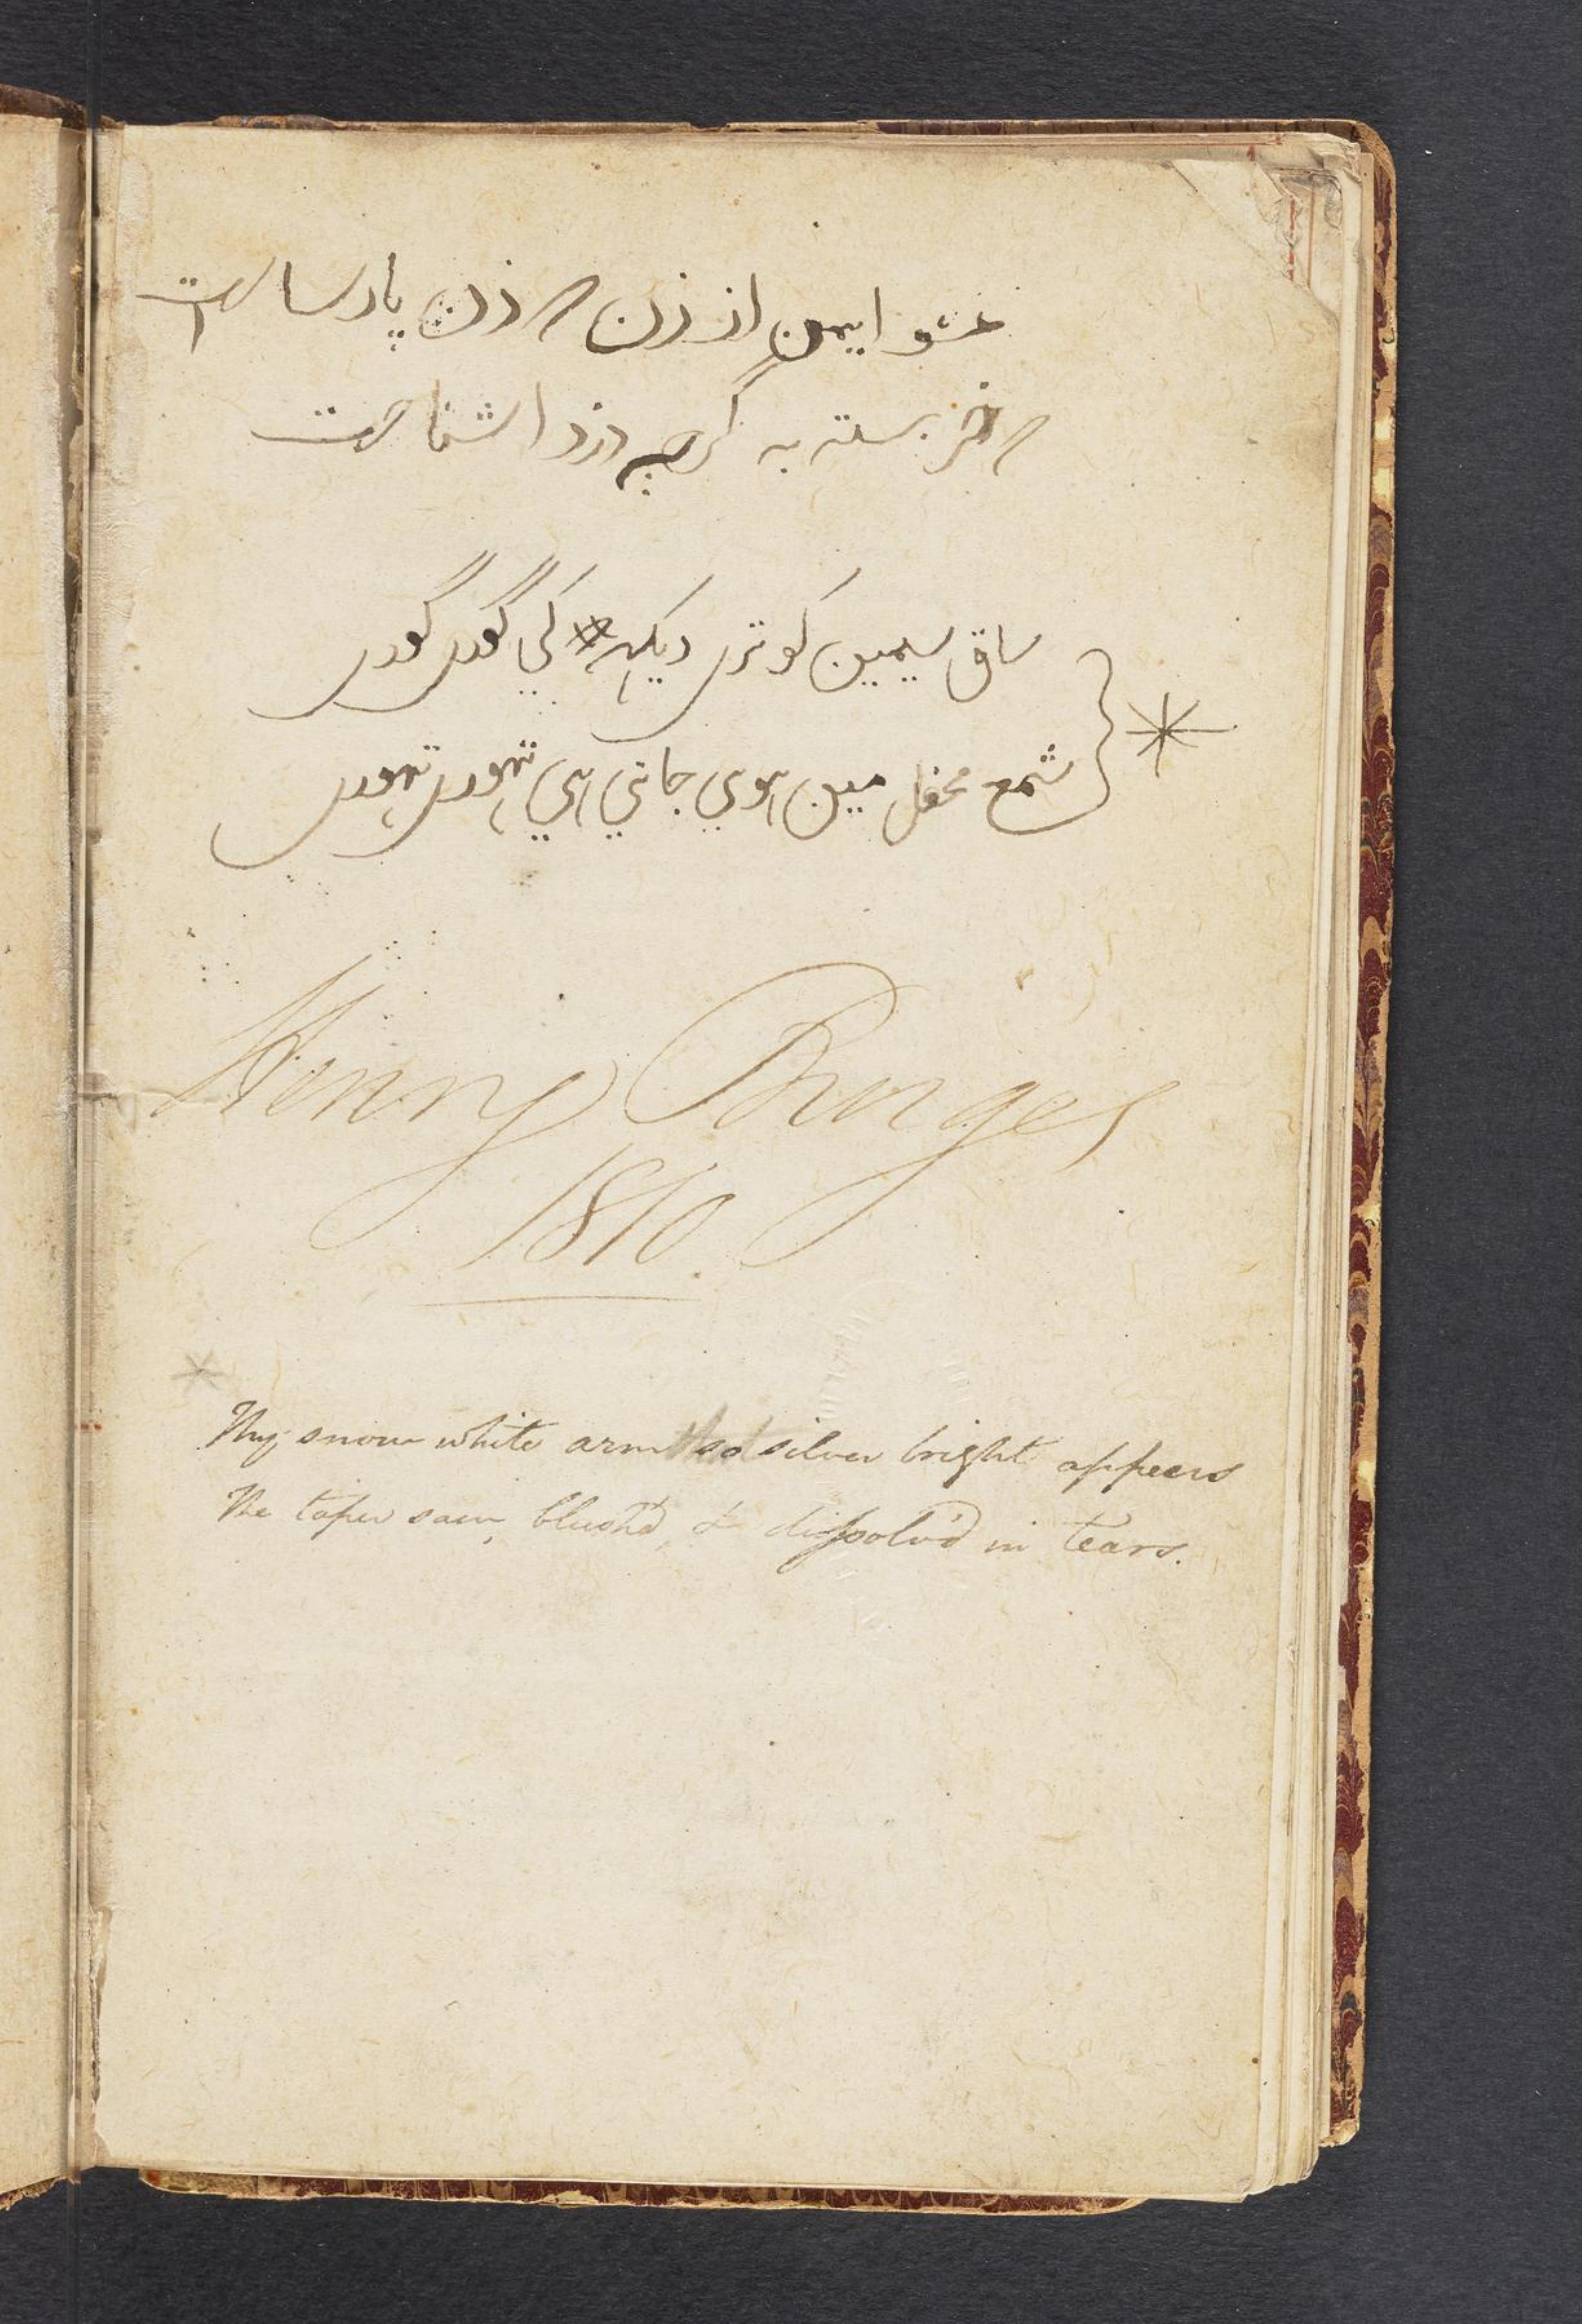 مشو ایمن از زن که زن پارساست
که خر بسته به گرچه دزد اشناست
ساق سیمین کو تری دیکهہ کی گوری گوری
شمع محفل مین هوی جاتي هي تهوری تهوری
*
Henry Burges
1810.
*
Thy snow white arm so silver bright appears
The taper saw, blush'd, & dissolv'd in tears.